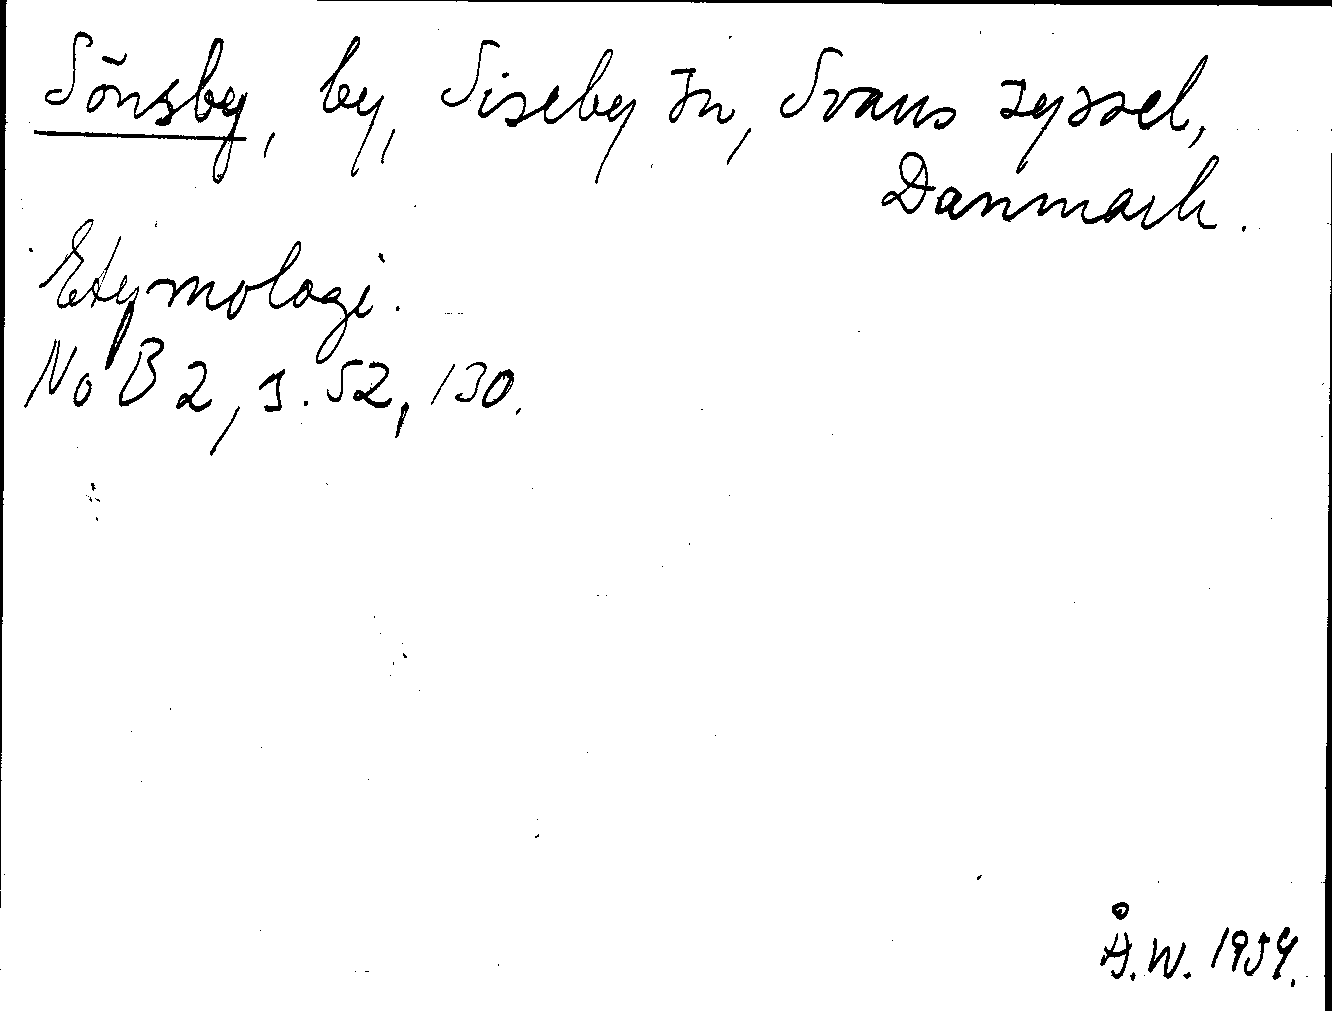 Sönsby, by, Siseby sn, Svans syssel,
Danmark.
Etymologi.
NoB 2, s. 52, 130.
Å.W. 1954.